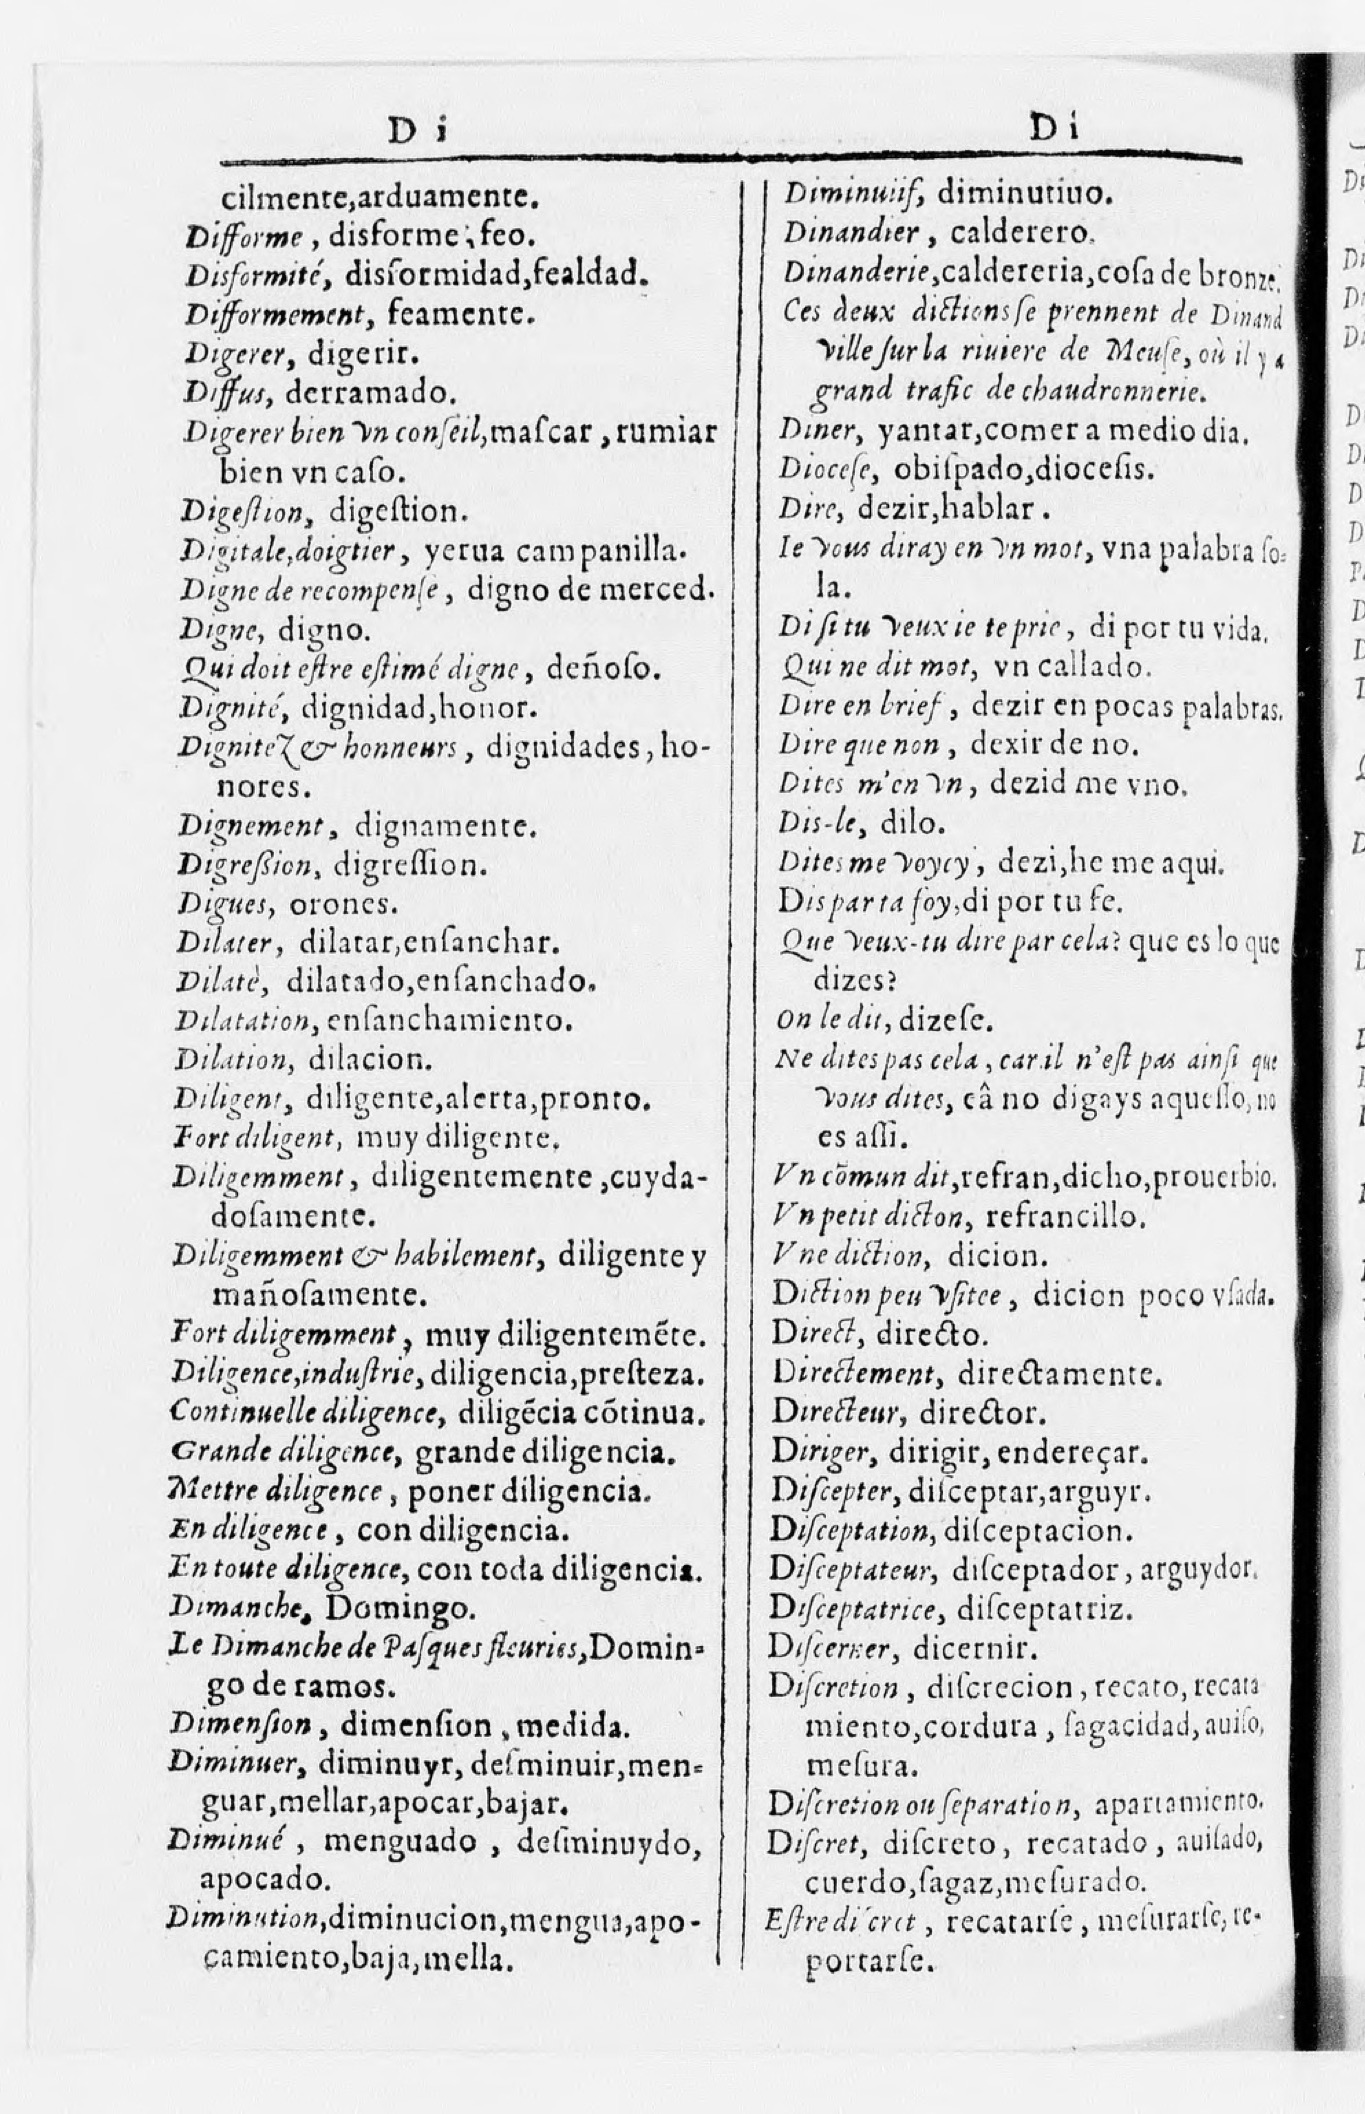 D i
cilmente,arduamente.
Difforme , disforme , feo.
Disformité, disformidad,fealdad.
Difformement, feamente.
Digerer, digerir.
Diffus, derramado.
Digerer bien vn conſeil,maſcar , rumiar
bien vn caſo.
Digeſtion, digeſtion.
Digitale,doigtier, yerua campanilla.
Digne de recompenſe , digno de merced.
Digne, digno.
Qui doit eſtre eſtimé digne, deñoſo.
Dignité, dignidad,honor.
Dignitez & honneurs , dignidades, ho-
nores.
Dignement, dignamente.
Digreßion, digreſſion.
Digues, orones.
Dilater, dilatar,enſanchar.
Dilatè, dilatado,enſanchado.
Dilatation, enſanchamiento.
Dilation, dilacion.
Diligent, diligente,alerta,pronto.
Fort diligent, muy diligente.
Diligemment, diligentemente ,cuyda-
doſamente.
Diligemment & habilement, diligente y
mañoſamente.
Fort diligemment, muy diligentemẽte.
Diligence,induſtrie, diligencia,preſteza.
Continuelle diligence, diligẽcia cõtinua.
Grande diligence, grande diligencia.
Mettre diligence , poner diligencia.
En diligence , con diligencia.
En toute diligence, con toda diligencia.
Dimanche, Domingo.
Le Dimanche de Paſques fleuries,Domin-
go de ramos.
Dimenſion , dimenſion , medida.
Diminuer, diminuyr, deſminuir,men-
guar,mellar,apocar,bajar.
Diminué , menguado , deſminuydo,
apocado.
Diminution,diminucion,mengua,apo-
çamiento,baja,mella.
D i
Diminuiif, diminutiuo.
Dinandier , calderero.
Dinanderie,caldereria,coſa de bronze.
Ces deux dictions ſe prennent de Dinand
ville ſur la riuiere de Meuſe, où il y a
grand trafic de chaudronnerie.
Diner, yantar,comer a medio dia.
Dioceſe, obiſpado,dioceſis.
Dire, dezir,hablar .
Ie vous diray en vn mot, vna palabra ſo-
la.
Di ſi tu veux ie te prie , di por tu vida.
Qui ne dit mot, vn callado.
Dire en brief , dezir en pocas palabras.
Dire que non , dexir de no.
Dites m'en vn, dezid me vno.
Dis-le, dilo.
Dites me voycy , dezi,he me aqui.
Dis par ta foy,di por tu fe.
Que veux-tu dire par cela? que es lo que
dizes?
On le dit, dizeſe.
Ne dites pas cela , car il n'eſt pas ainſi que
vous dites, eâ no digays aqueſſo, no
es aſſi.
Vn cõmun dit,refran,dicho,prouerbio.
Vn petit dicton, refrancillo.
Vne diction, dicion.
Diction peu vſitee , dicion poco vſada.
Direct, directo.
Directement, directamente.
Directeur, director.
Diriger, dirigir, endereçar.
Diſcepter, diſceptar,arguyr.
Diſceptation, diſceptacion.
Diſceptateur, diſceptador, arguydor.
Diſceptatrice, diſceptatriz.
Diſcerner, dicernir.
Diſcretion , diſcrecion, recato, recata
miento,cordura , ſagacidad, auiſo,
meſura.
Diſcretion ou ſeparation, apartamiento.
Diſcret, diſcreto, recatado , auiſado,
cuerdo,ſagaz,meſurado.
Eſtre diſcret , recatarſe , meſurarſe, re-
portarſe.